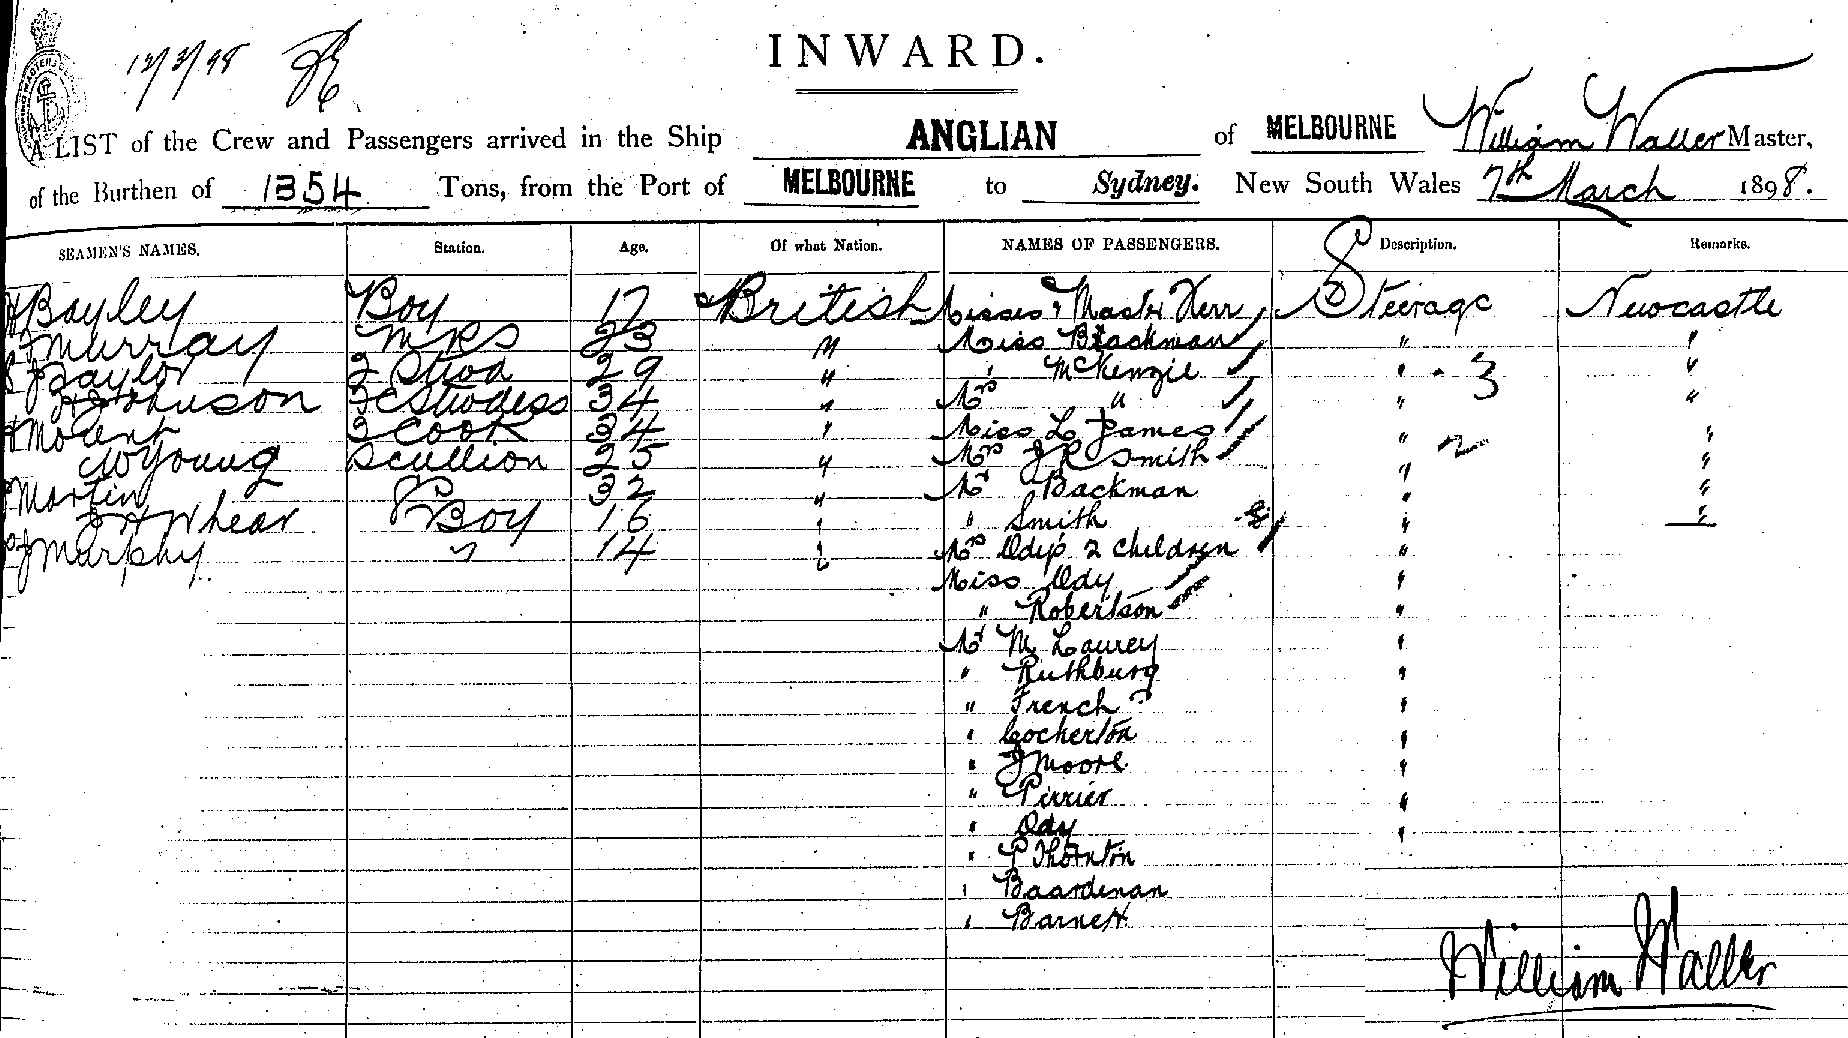 12/3/98
INWARD.
A LIST of the Crew and Passengers arrived in the Ship ANGLIAN of MELBOURNE William Waller Master,
of the Burthen of 1354 Tons, from the Port of MELBOURNE to Sydney. New South Wales 7th March 1898.
SEAMEN'S NAMES. Station. Age. Of what Nation. NAMES OF PASSENGERS. Description. Remarks.
Bayley Boy 17 British Misses & Master Kerr Steerage Newcastle
Murray MRS 23 " Miss Blackman " "
Taylor 2 Stwd 29 " " McKenzie " 3 "
Johnson 3 Stwdess 34 " Mrs " " "
Mount 3 Cook 34 " Miss L James " 2 "
W Young Scullion 25 " Mrs J R Smith " "
Martin P 32 " Mr Backman " "
J H Whear Boy 16 " " Smith " "
J Murphy " 14 " Mrs Ody & 2 Children "
Miss Ody "
" Robertson "
Mr M Laurey "
" Ruthburg "
" French "
" Cocherton "
" J Moore "
" Perrier "
" Ody "
" P Thornton
" Baardenan
" Barnett
William Waller